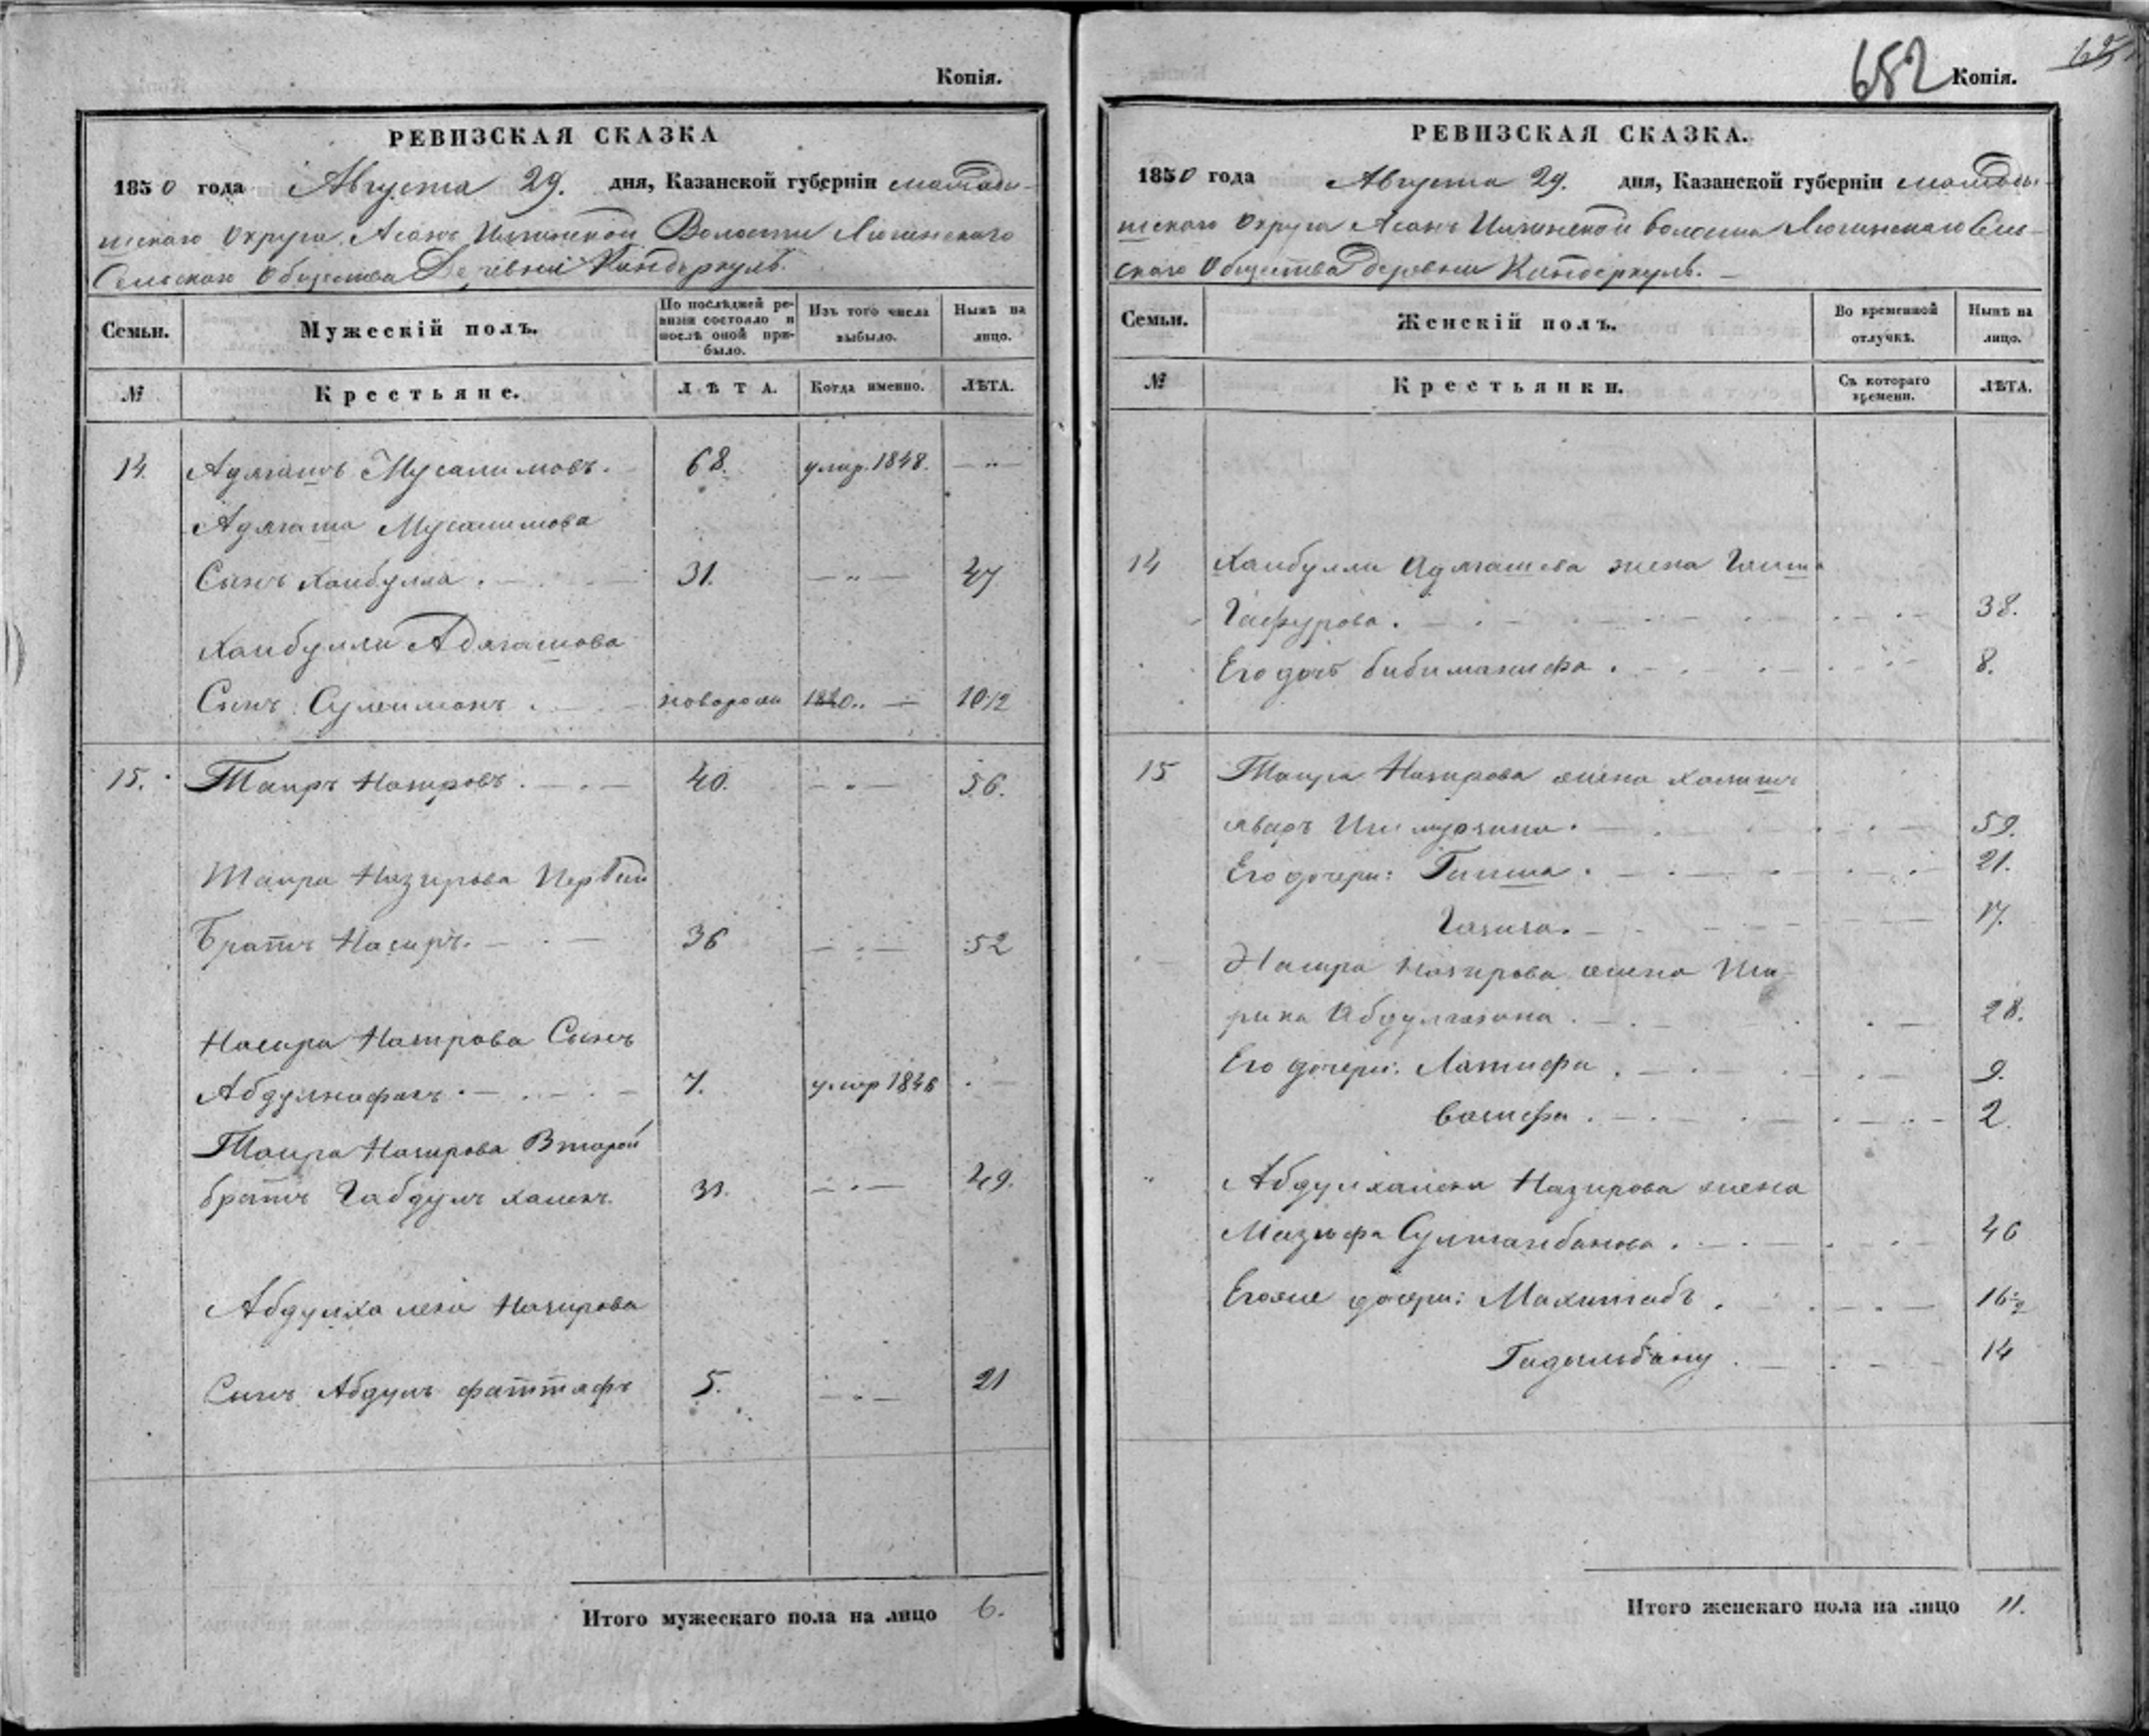 Копія.
РЕВИЗСКАЯ СКАЗКА
1850 года Августа 29. дня, Казанской губерніи мамады-
шскаго Округа, Асанъ Илгинской Волости
Сельскаго Общества Деревни Киндеркуль.
Семьи.
Мужескій полъ.
По послѣдней ре-
визіи состояло и
послѣ оной при-
было.
Изъ того числа
выбыло.
Нынѣ на
лицо.
№
Крестьяне.
ЛѢТА.
Когда именно.
ЛѢТА.
14. Адягашъ Мусалимовъ. 68. умер. 1848. — " —
Адягаша Мусалимова
Сынъ Хаибулла. 31. — " — 47
Хаибуллы Адягашова
Сынъ Сулейманъ новорож 1840 — 10 1/2
15. Таиръ Назировъ. 40. — " — 56.
Таира Назирова Первый
Братъ Насыръ. 36 — " — 52
Насыра Назирова Сынъ
7. умер 1846
Таира Назирова Второй
братъ Габдулъ халекъ. 31. — " — 49.
Абдулхалека Назирова
Сынъ Абдулъ фаттафъ 5. — " — 21
Итого мужескаго пола на лицо 6.
652
Копія.
РЕВИЗСКАЯ СКАЗКА.
1850 года Августа 29. дня, Казанской губерніи мамады-
шскаго Округа Асанъ Илгинской волости Сель-
скаго Общества деревни Киндеркуль. —
Семьи.
Женскій полъ.
Во временной
отлучкѣ.
Нынѣ на
лицо.
№
Крестьянки.
Съ котораго
времени.
ЛѢТА.
14 Хаибуллы Адягашева жена
Гафурова. 38.
Его дочь бибиманифа. 8.
15 Таира Назирова жена
59.
Его дочери: Гаиша. 21.
Газиза. 17.
Насыра Назирова жена Ши-
рина 28.
Его дочери: Латифа. 9.
Васифа. 2.
" Абдулхалека Назирова жена
Мазифа 46
Егоже дочери: Махитабъ. 16 1/2
14
Итого женскаго пола на лицо 11.